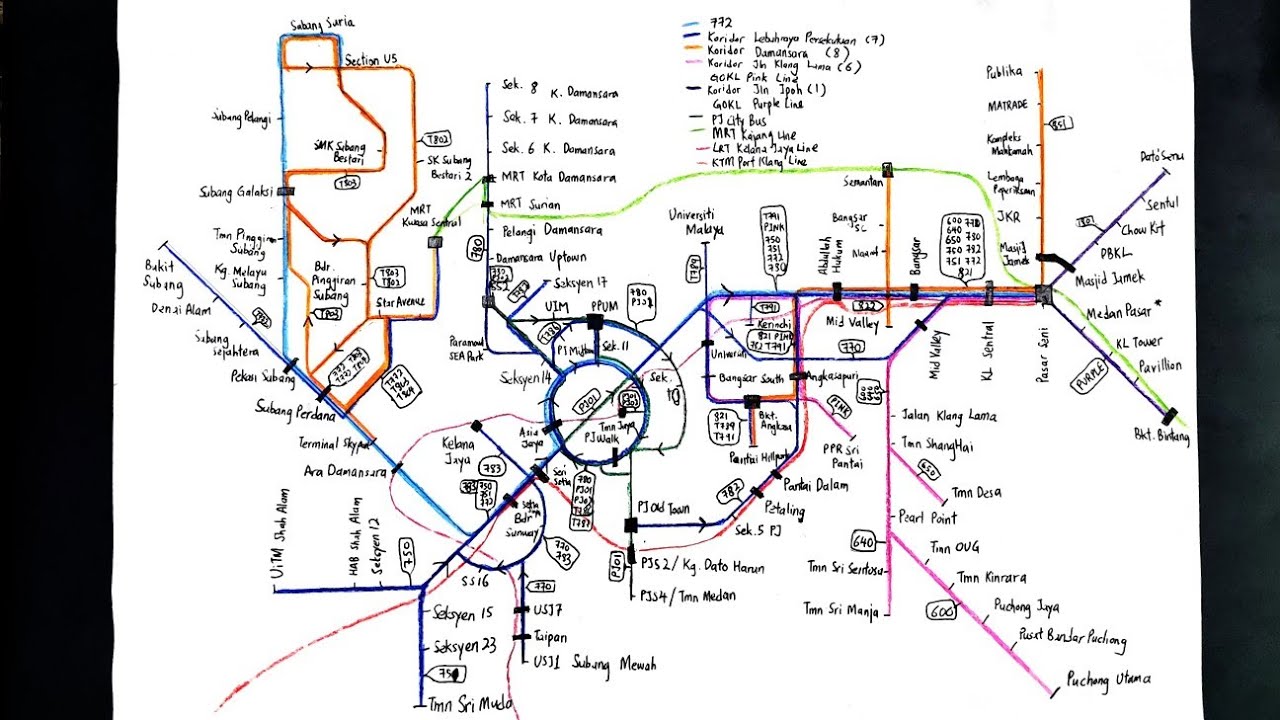 Subang Suria
Section U5
Subang Pelangi
SMK Subang
Bestari
T802
SK Subang
Bestari 2
T803
Subang Galaksi
MRT
Kwasa Sentral
Tmn Pinggiran
Subang
Kg. Melayu
Subang
Bdr.
Pinggiran
Subang
T802
T803
T803
Star Avenue
Bukit
Subang
Denai Alam
Subang
Sejahtera
Pekan Subang
Subang Perdana
T772
Terminal Skypark
Ara Damansara
772
Koridor Lebuhraya Persekutuan (7)
Koridor Damansara (8)
Koridor Jln Klang Lama (6)
GOKL Pink Line
Koridor Jln Ipoh (1)
GOKL Purple Line
PJ City Bus
MRT Kajang Line
LRT Kelana Jaya Line
KTM Port Klang Line
Sek. 8 K. Damansara
Sek. 7 K. Damansara
Sek. 6 K. Damansara
MRT Kota Damansara
MRT Surian
Pelangi Damansara
780
Damansara Uptown
Seksyen 17
Paramount
SEA Park
UIM
PPUM
780
PJ Midtown
Sek. 11
Seksyen 14
PJ01
Tmn Jaya
PJ Walk
Asia
Jaya
Kelana
Jaya
783
Seri
Setia
Setia
Bdr
Sunway
783
750
751
772
780
PJ01
770
783
SS16
770
USJ7
Taipan
USJ1 Subang Mewah
UiTM Shah Alam
HAB Shah Alam
Seksyen 12
750
Seksyen 15
Seksyen 23
Tmn Sri Muda
PJ Old Town
PJ01
PJS2 / Kg. Dato Harun
PJS4 / Tmn Medan
782
Sek. 5 PJ
Petaling
Pantai Dalam
Universiti
Malaya
T789
T791
PINK
750
751
772
T791
Kerinchi
821 PINK
Universiti
Bangsar South
Angkasapuri
Bkt.
Angkasa
821
T789
T791
Pantai Hillpark
PINK
PPR Sri
Pantai
770
Semantan
Bangsar
SC
Abdullah
Hukum
Bangsar
822
Mid Valley
600
640
650
821
Mid Valley
KL Sentral
Pasar Seni
Publika
MATRADE
851
Kompleks
Mahkamah
Lembaga
Peperiksaan
JKR
Masjid
Jamek
Dato' Senu
Sentul
Chow Kit
PBKL
Masjid Jamek
Medan Pasar
KL Tower
Pavillion
PURPLE
Bkt. Bintang
Jalan Klang Lama
Tmn Shanghai
650
Tmn Desa
Pearl Point
640
Tmn OUG
Tmn Sri Sentosa
Tmn Kinrara
Tmn Sri Manja
600
Puchong Jaya
Pusat Bandar Puchong
Puchong Utama